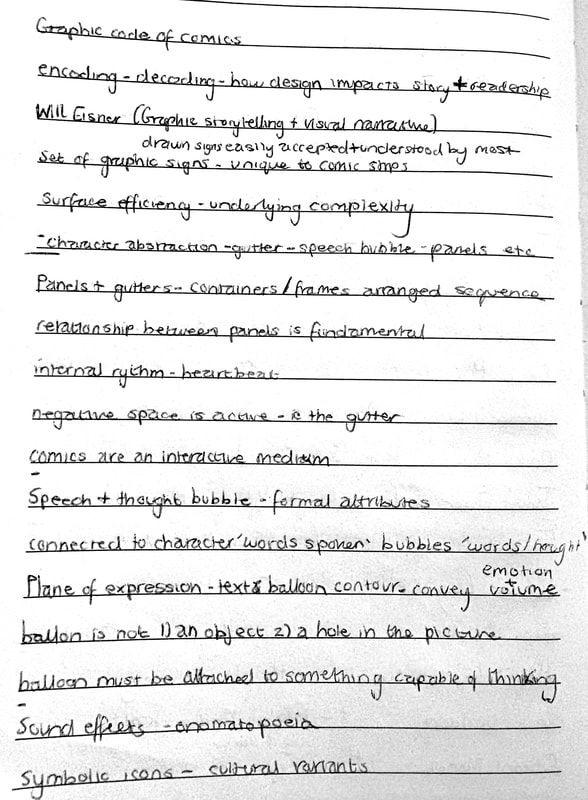 Graphic code of comics
encoding - decoding - how design impacts story + readership
Will Eisner (Graphic storytelling + visual narrative)
drawn signs easily accepted + understood by most
Set of graphic signs - unique to comic strips
Surface efficiency - underlying complexity
- character abstraction - gutter - speech bubble - panels etc
Panels + gutters - containers / frames arranged sequence
relationship between panels is fundamental
internal rythm - heartbeat
negative space is active - ie the gutter
comics are an interactive medium
Speech + thought bubble - formal attributes
connected to character 'words spoken' bubbles 'words/thought'
emotion
Plane of expression - text & balloon contour - convey + volume
ballon is not 1) an object 2) a hole in the picture
balloon must be attached to something capable of thinking
Sound effects - onomatopoeia
Symbolic icons - cultural variants